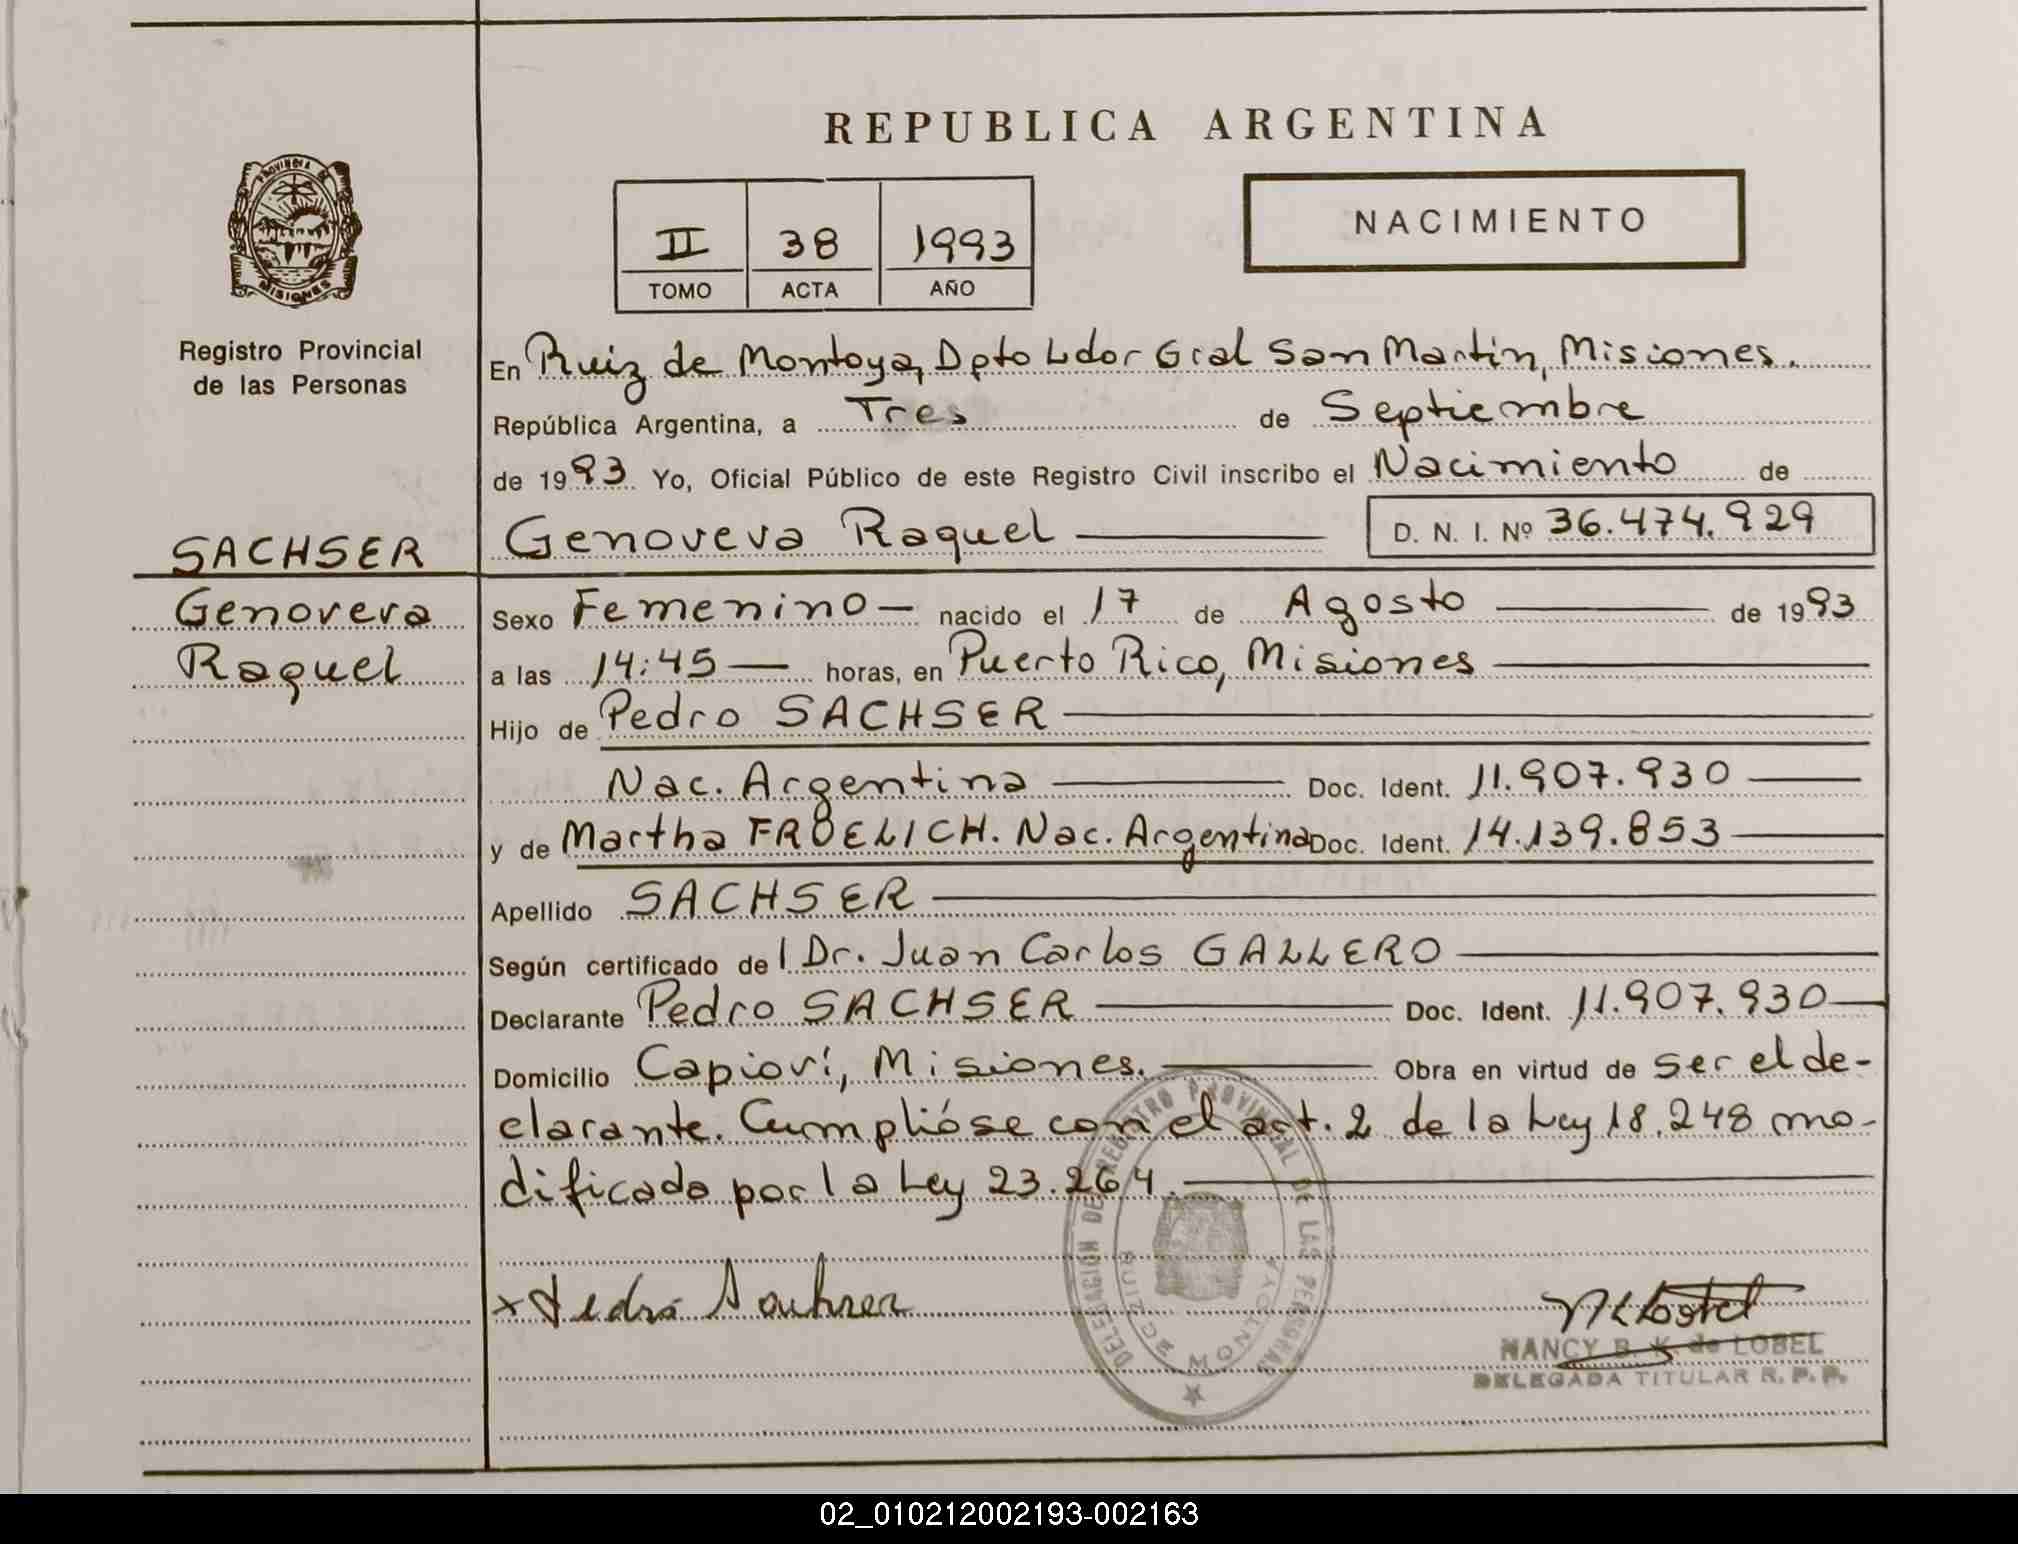 REPUBLICA ARGENTINA
PROVINCIA DE
MISIONES
Registro Provincial
de las Personas
II 38 1993
TOMO ACTA AÑO
NACIMIENTO
En Ruiz de Montoya, Dpto Ldor Gral San Martín, Misiones.
República Argentina, a Tres de Septiembre
de 1993 Yo, Oficial Público de este Registro Civil inscribo el Nacimiento de
Genoveva Raquel D. N. I. Nº 36.474.929
SACHSER
Genoveva
Raquel
Sexo Femenino — nacido el 17 de Agosto de 1993
a las 14:45 — horas, en Puerto Rico, Misiones
Hijo de Pedro SACHSER
Nac. Argentina Doc. Ident. 11.907.930
y de Martha FROELICH. Nac. Argentina Doc. Ident. 14.139.853
Apellido SACHSER
Según certificado del Dr. Juan Carlos GALLERO
Declarante Pedro SACHSER Doc. Ident. 11.907.930
Domicilio Capioví, Misiones. Obra en virtud de ser el de-
clarante. Cumplióse con el art. 2 de la Ley 18.248 mo-
dificado por la Ley 23.264.
x Pedro Sachser
DELEGACIÓN DE REGISTRO PROVINCIAL DE LAS PERSONAS
RUIZ DE MONTOYA
NANCY B. K. de LOBEL
DELEGADA TITULAR R. P. P.
02_010212002193-002163